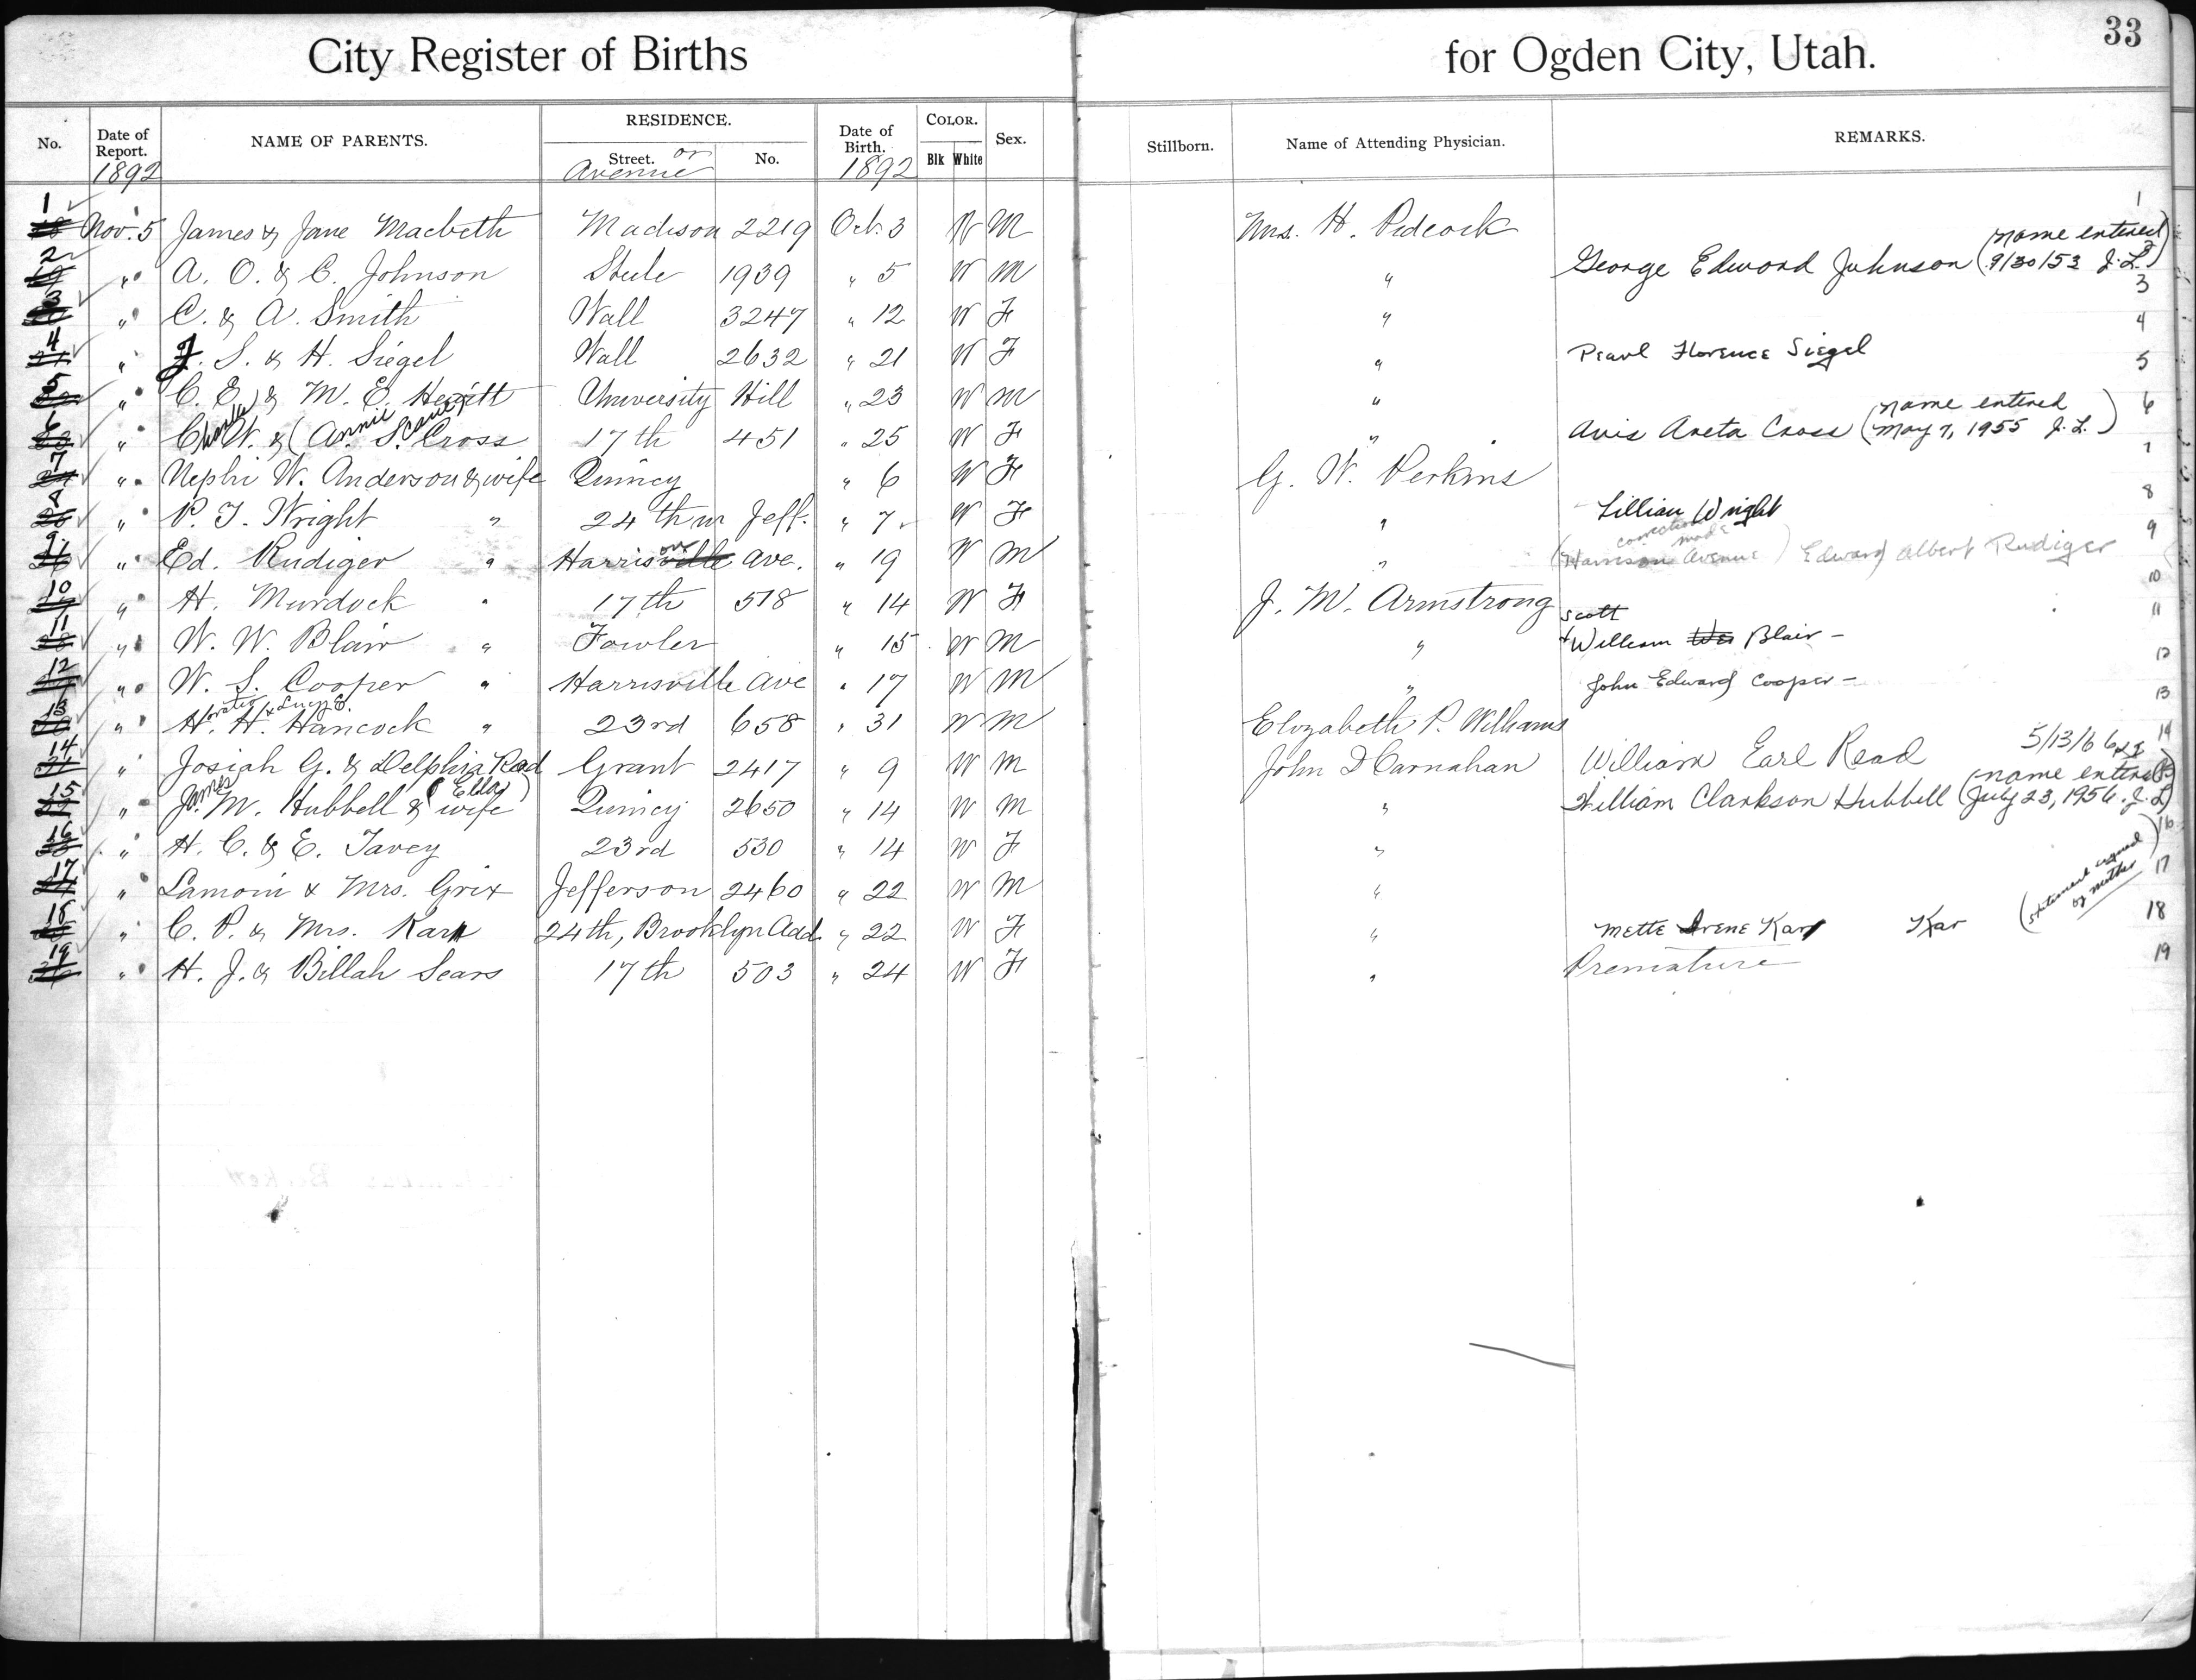 City Register of Births for Ogden City, Utah. 33
No. Date of Report. NAME OF PARENTS. RESIDENCE. Street. No. Date of Birth. COLOR. Blk White Sex. Stillborn. Name of Attending Physician. REMARKS.
1892 or Avenue 1892
1 Nov. 5 James & Jane Macbeth Madison 2219 Oct. 3 W M Mrs. H. Pidcock 1
2 " A. O. & C. Johnson Steele 1939 " 5 W M " George Edward Johnson (name entered 9/30/53 J.L.) 2
3 " C. & A. Smith Wall 3247 " 12 W F " 3
4 " J. S. & H. Siegel Wall 2632 " 21 W F " Pearl Florence Siegel 4
5 " C. E. & M. E. University Hill " 23 W M " 5
6 " Charles W. & (Annie S. Cross 17th 451 " 25 W F " Avis Areta Cross (name entered May 7, 1955 J.L.) 6
7 " Nephi W. Anderson & wife Quincy " 6 W F G. W. Perkins 7
8 " P. T. Wright " 24th nr Jeff. " 7 W F " Lillian Wright 8
9 " Ed. Rudiger " Harrisville on ave. " 19 W M " (Harrison Avenue correction made) Edward Albert Rudiger 9
10 " H. Murdock " 17th 518 " 14 W F J. M. Armstrong 10
11 " W. W. Blair " Fowler " 15 W M " William Scott Blair - 11
12 " W. S. Cooper " Harrisville ave " 17 W M " John Edward Cooper - 12
13 " Horatio H. & Lucy E. Hancock " 23rd 658 " 31 W M Elizabeth P. Williams 13
14 " Josiah G. & Delphia Read Grant 2417 " 9 W M John D Carnahan William Earl Read 5/13/66 14
15 " James M. Hubbell & wife (Ella) Quincy 2650 " 14 W M " William Clarkson Hubbell (name entered July 23, 1956. J.L.) 15
16 " H. C. & E. Tavey 23rd 530 " 14 W F " 16
17 " Lamoni & Mrs. Grix Jefferson 2460 " 22 W M " 17
18 " C. P. & Mrs. Kar 24th, Brooklyn Add. " 22 W F " Mette Irene Kar Kar (statement signed by mother) 18
19 " H. J. & Billah Sears 17th 503 " 24 W F " Premature 19